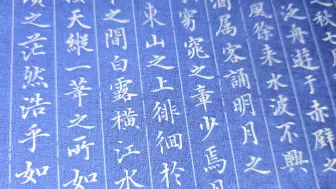 泛舟遊于赤壁
風徐来水波不興
屬客誦明月之
窈窕之章少焉月
東山之上徘徊於
之間白露橫江水
天縱一葦之所如
之茫然浩乎如